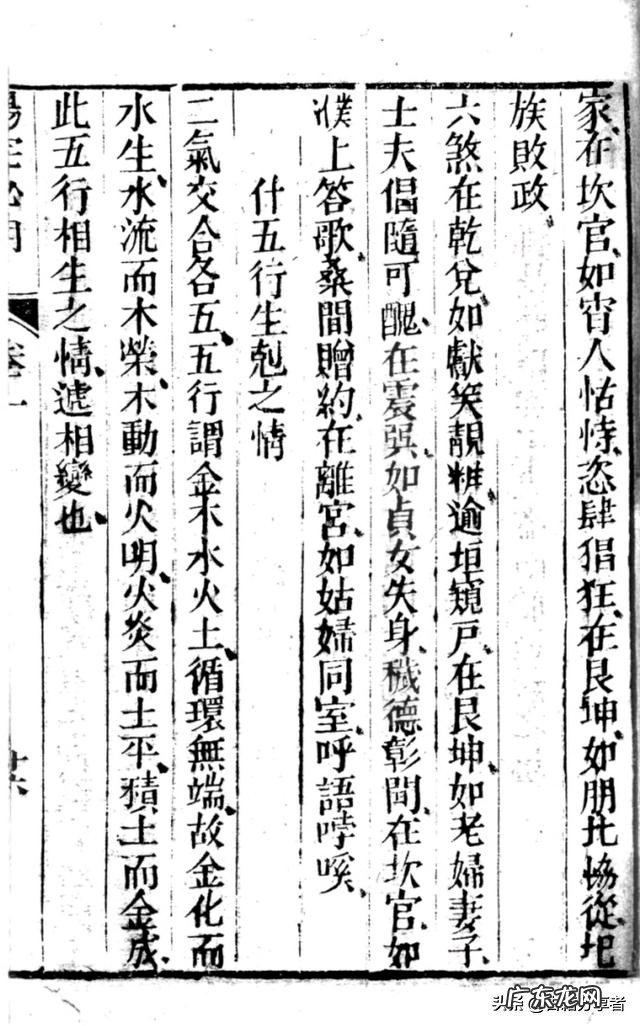 家在坎宫如宵人怙恃恣肆猖狂在艮坤如朋比恊從圯
族敗政
六煞在乾兌如獻笑靚粧逾垣窺戸在艮坤如老婦妻子
士夫倡隨可醜在震巽如貞女失身穢德彰聞在坎宫如
濮上答歌桑間贈約在離宮如姑婦同室呼語哱嗘
什五行生尅之情
二氣交合各五五行謂金木水火土循環無端故金化而
水生水流而木榮木動而火明火炎而土平積土而金成
此五行相生之情遞相變也
陽宅必用
卷二
廿六
头条
分享者
广东龙网